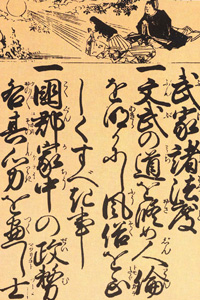 武家諸法度
一文武の道を修め人倫
を明にし風俗を正
しくすべき事
一國郡家中の政務
各其心力を盡し士